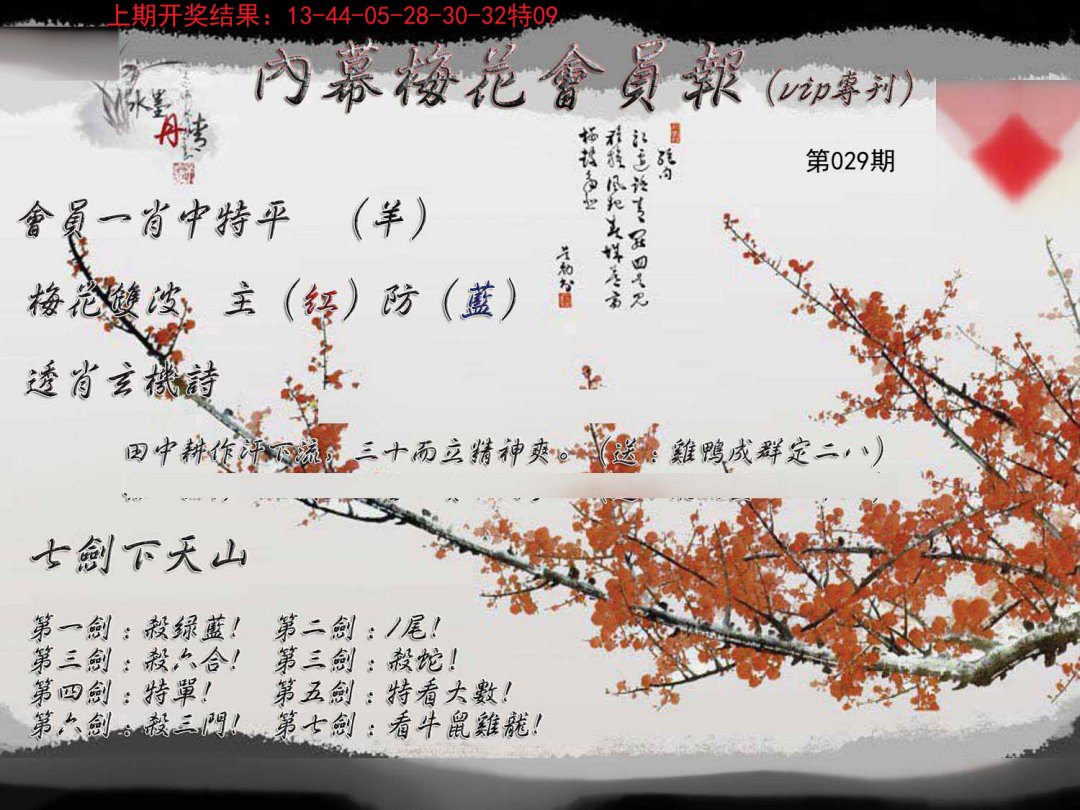 上期开奖结果：13-44-05-28-30-32特09
內幕梅花會員報（vip專刊）
水墨
丹青
第029期
會員一肖中特平 （羊）
梅花雙波 主（红）防（藍）
透肖玄機詩
田中耕作汗下流，三十而立精神爽。（送：雞鴨成群定二八）
七劍下天山
第一劍：殺绿藍！ 第二劍：1尾！
第三劍：殺六合！ 第三劍：殺蛇！
第四劍：特單！ 第五劍：特看大數！
第六劍：殺三門！ 第七劍：看牛鼠雞龍！